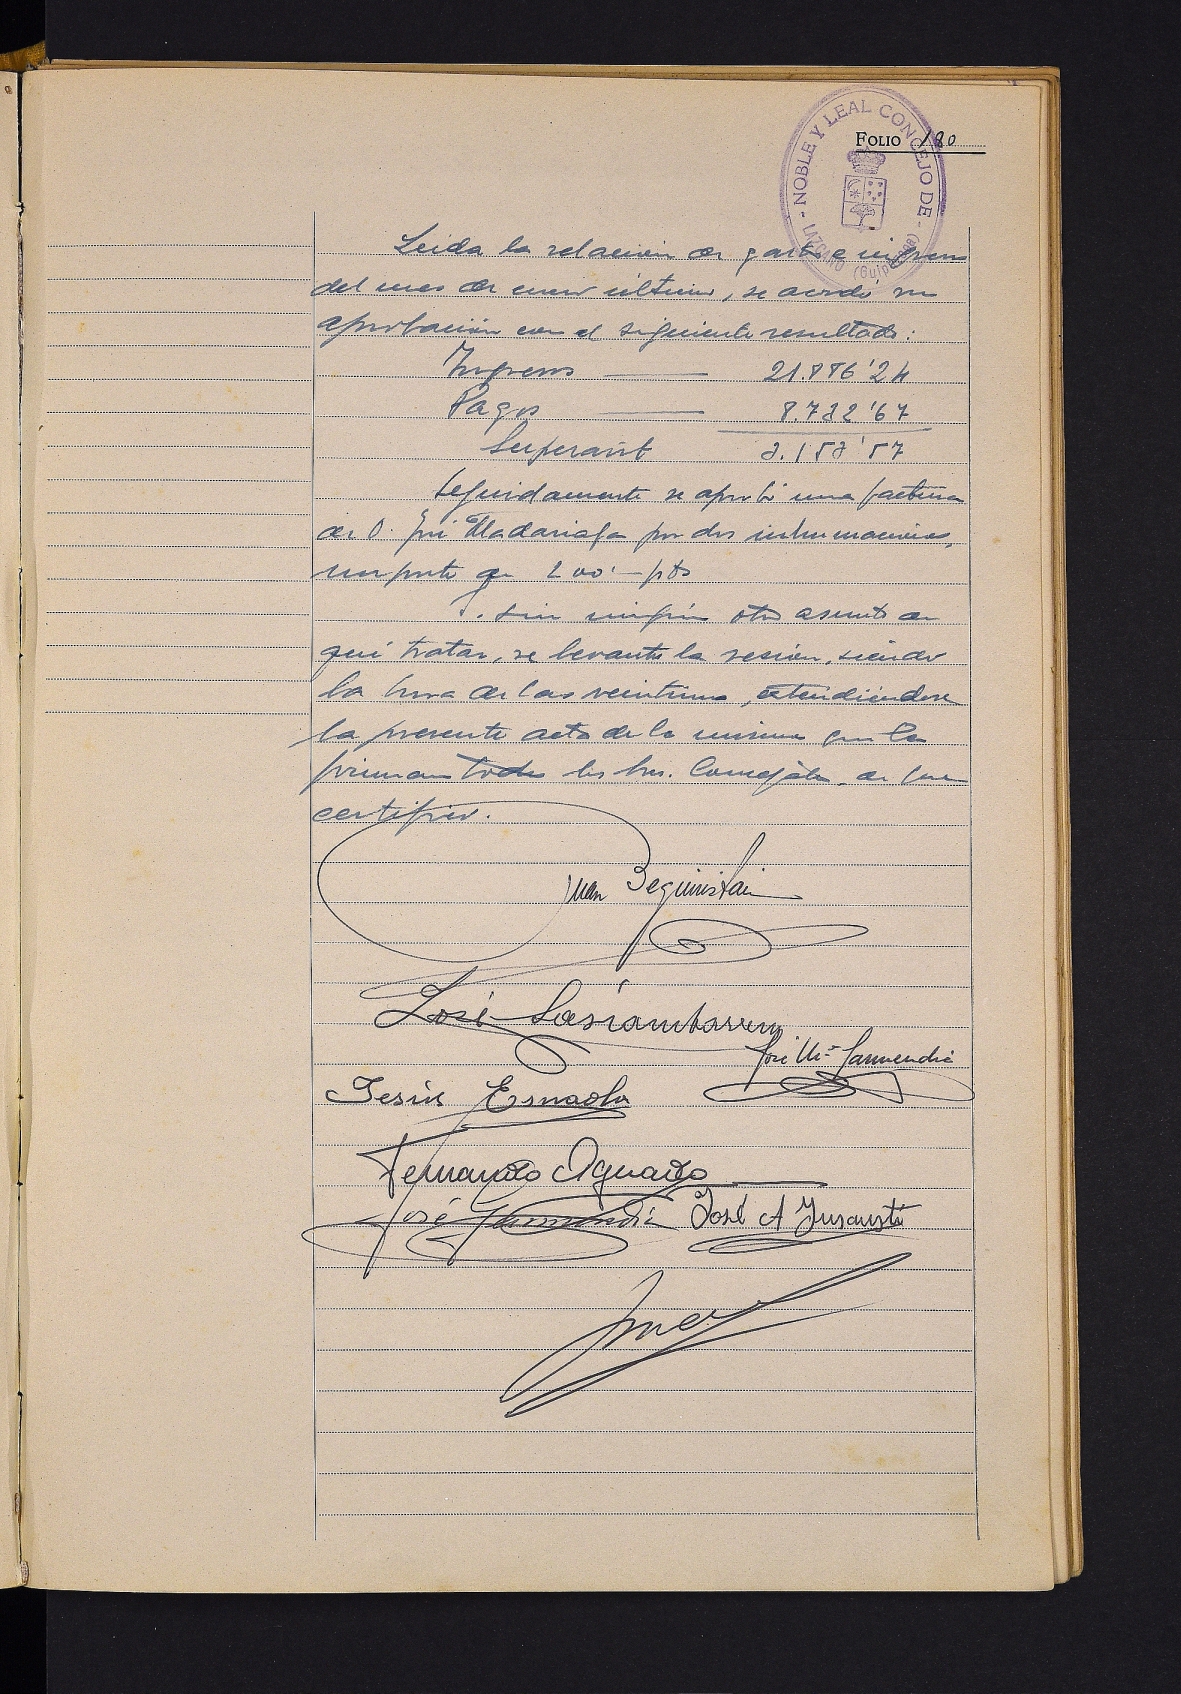 NOBLE Y LEAL CONCEJO DE
LAZCANO (Guipúzcoa)
FOLIO 180
Leida la relación de gastos e ingresos
del mes de enero último, se acordó su
aprobación con el siguiente resultado:
Ingresos
Pagos 8.732'67
Superavit
Seguidamente se aprobó una factura
de D. José Madariaga por dos
importe de 200'— pts
Y sin ningún otro asunto de
qué tratar, se levantó la sesión, siendo
la hora de las veintiuna, extendiéndose
la presente acta de la misma que la
firman todos los Srs. Concejales, de que
certifico.
Juan Beguiristain
José Lasa
José Mª Garmendia
Jesús Esnaola
Fernando Aguado
José Garmendia José A Insausti